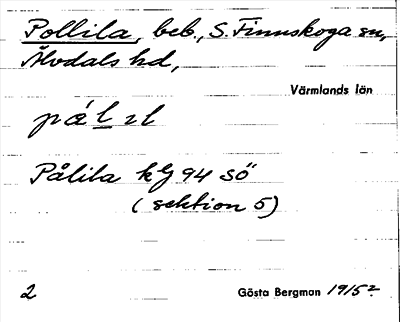 Pollila, beb., S. Finnskoga sn,
Älvdals hd,
Värmlands län
Pålila kg 94 sö
(sektion 5)
2 Gösta Bergman 1915?